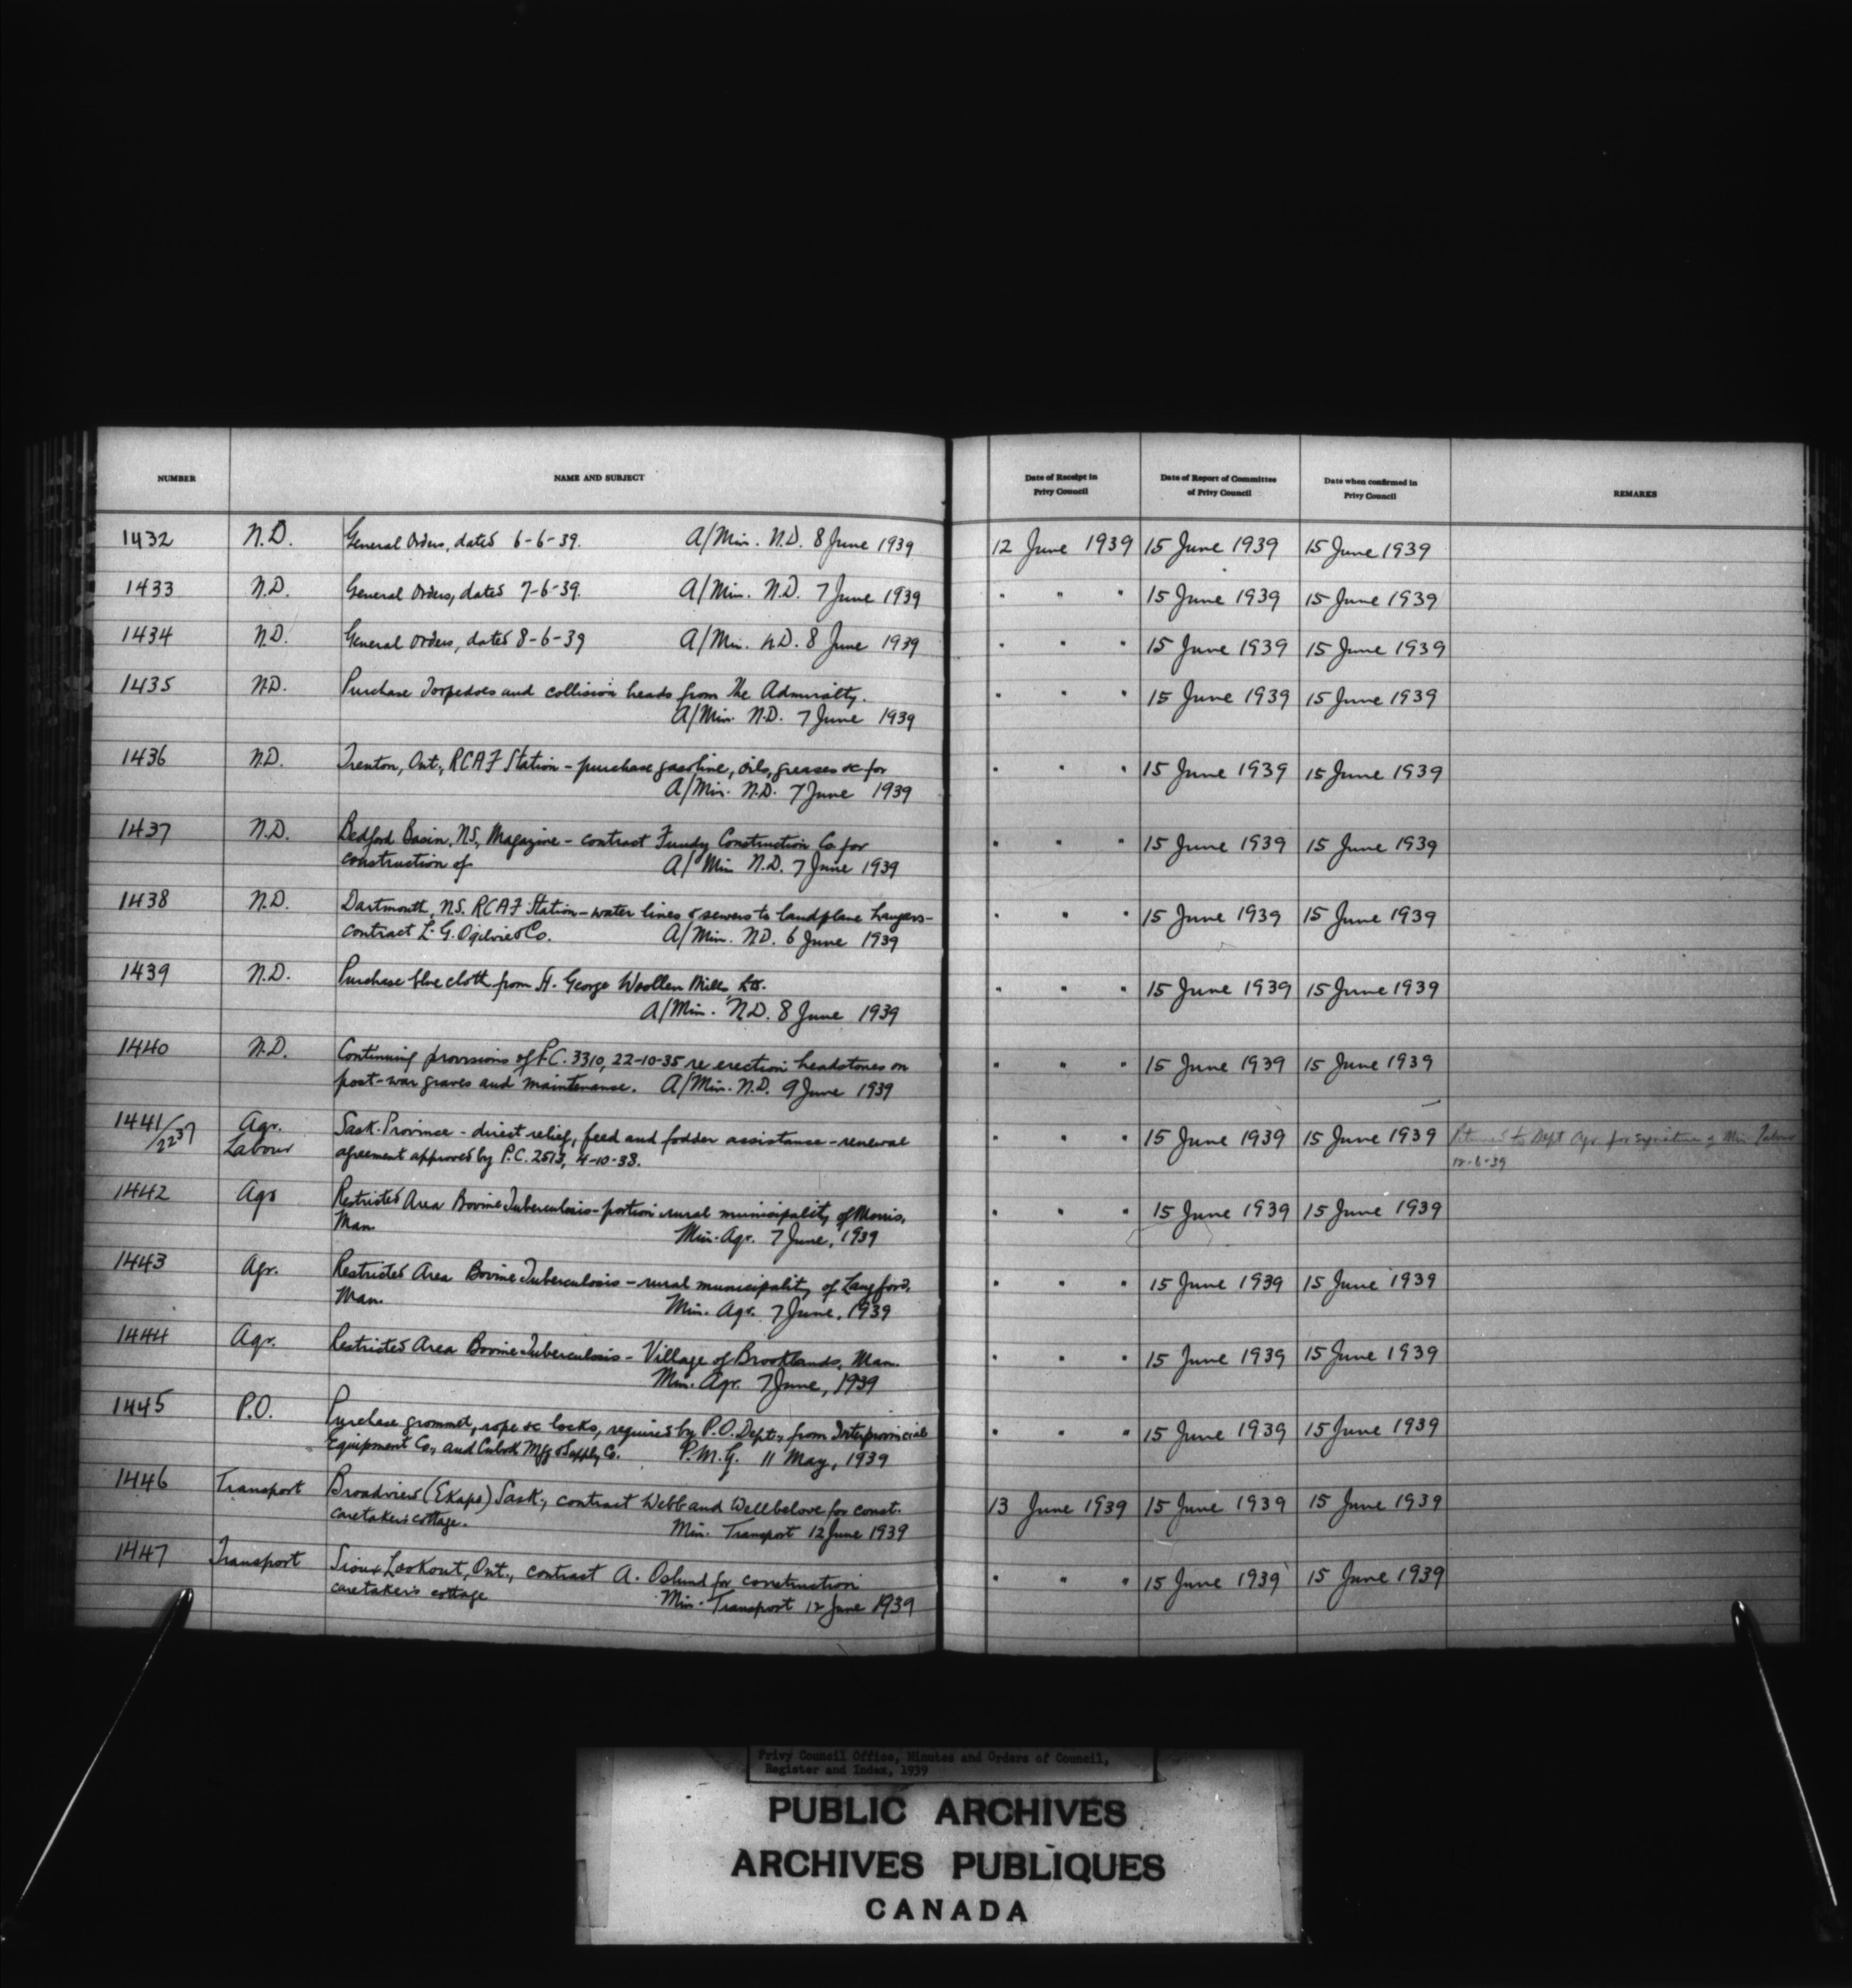 NUMBER NAME AND SUBJECT Date of Receipt in Privy Council Date of Report of Committee of Privy Council Date when confirmed in Privy Council REMARKS
1432 N.D. General Orders, dated 6-6-39. A/Min. N.D. 8 June 1939 12 June 1939 15 June 1939 15 June 1939
1433 N.D. General Orders, dated 7-6-39. A/Min. N.D. 7 June 1939 " " " 15 June 1939 15 June 1939
1434 N.D. General Orders, dated 8-6-39 A/Min. N.D. 8 June 1939 " " " 15 June 1939 15 June 1939
1435 N.D. Purchase Torpedoes and collision heads from The Admiralty. " " " 15 June 1939 15 June 1939
A/Min. N.D. 7 June 1939
1436 N.D. Trenton, Ont., RCAF Station - purchase gasoline, oils, greases &c for " " " 15 June 1939 15 June 1939
A/Min. N.D. 7 June 1939
1437 N.D. Bedford Basin, N.S., Magazine - contract Fundy Construction Co. for " " " 15 June 1939 15 June 1939
construction of A/Min N.D. 7 June 1939
1438 N.D. Dartmouth, N.S. RCAF Station - water lines & sewers to landplane hangars - " " " 15 June 1939 15 June 1939
contract L. G. Ogilvie & Co. A/Min. N.D. 6 June 1939
1439 N.D. Purchase blue cloth from St. George Woollen Mills Ltd. " " " 15 June 1939 15 June 1939
A/Min. N.D. 8 June 1939
1440 N.D. Continuing provisions of P.C. 3310, 22-10-35 re erection headstones on " " " 15 June 1939 15 June 1939
post-war graves and maintenance. A/Min. N.D. 9 June 1939
1441/2237 Agr. Labour Sask. Province - direct relief, feed and fodder assistance - renewal " " " 15 June 1939 15 June 1939 to Dept Agr. for signature of Min. Labour
agreement approved by P.C. 2513, 4-10-38. 12-6-39
1442 Agr Restricted Area Bovine Tuberculosis - portion rural municipality of Morris, " " " 15 June 1939 15 June 1939
Man. Min. Agr. 7 June, 1939
1443 Agr. Restricted Area Bovine Tuberculosis - rural municipality of Langford, " " " 15 June 1939 15 June 1939
Man. Min. Agr. 7 June, 1939
1444 Agr. Restricted Area Bovine Tuberculosis - Village of Brooklands, Man. " " " 15 June 1939 15 June 1939
Min. Agr. 7 June, 1939
1445 P.O. Purchase grommet, rope &c locks, required by P.O. Dept., from Interprovincial " " " 15 June 1939 15 June 1939
Equipment Co., and Mfg & Supply Co. P.M.G. 11 May, 1939
1446 Transport Broadview (Ekapo) Sask., contract Webb and Wellbelove for const. 13 June 1939 15 June 1939 15 June 1939
caretaker's cottage. Min. Transport 12 June 1939
1447 Transport Sioux Lookout, Ont., contract A. Oslund for construction " " " 15 June 1939 15 June 1939
caretaker's cottage Min. Transport 12 June 1939
Privy Council Office, Minutes and Orders of Council,
Register and Index, 1939
PUBLIC ARCHIVES
ARCHIVES PUBLIQUES
CANADA